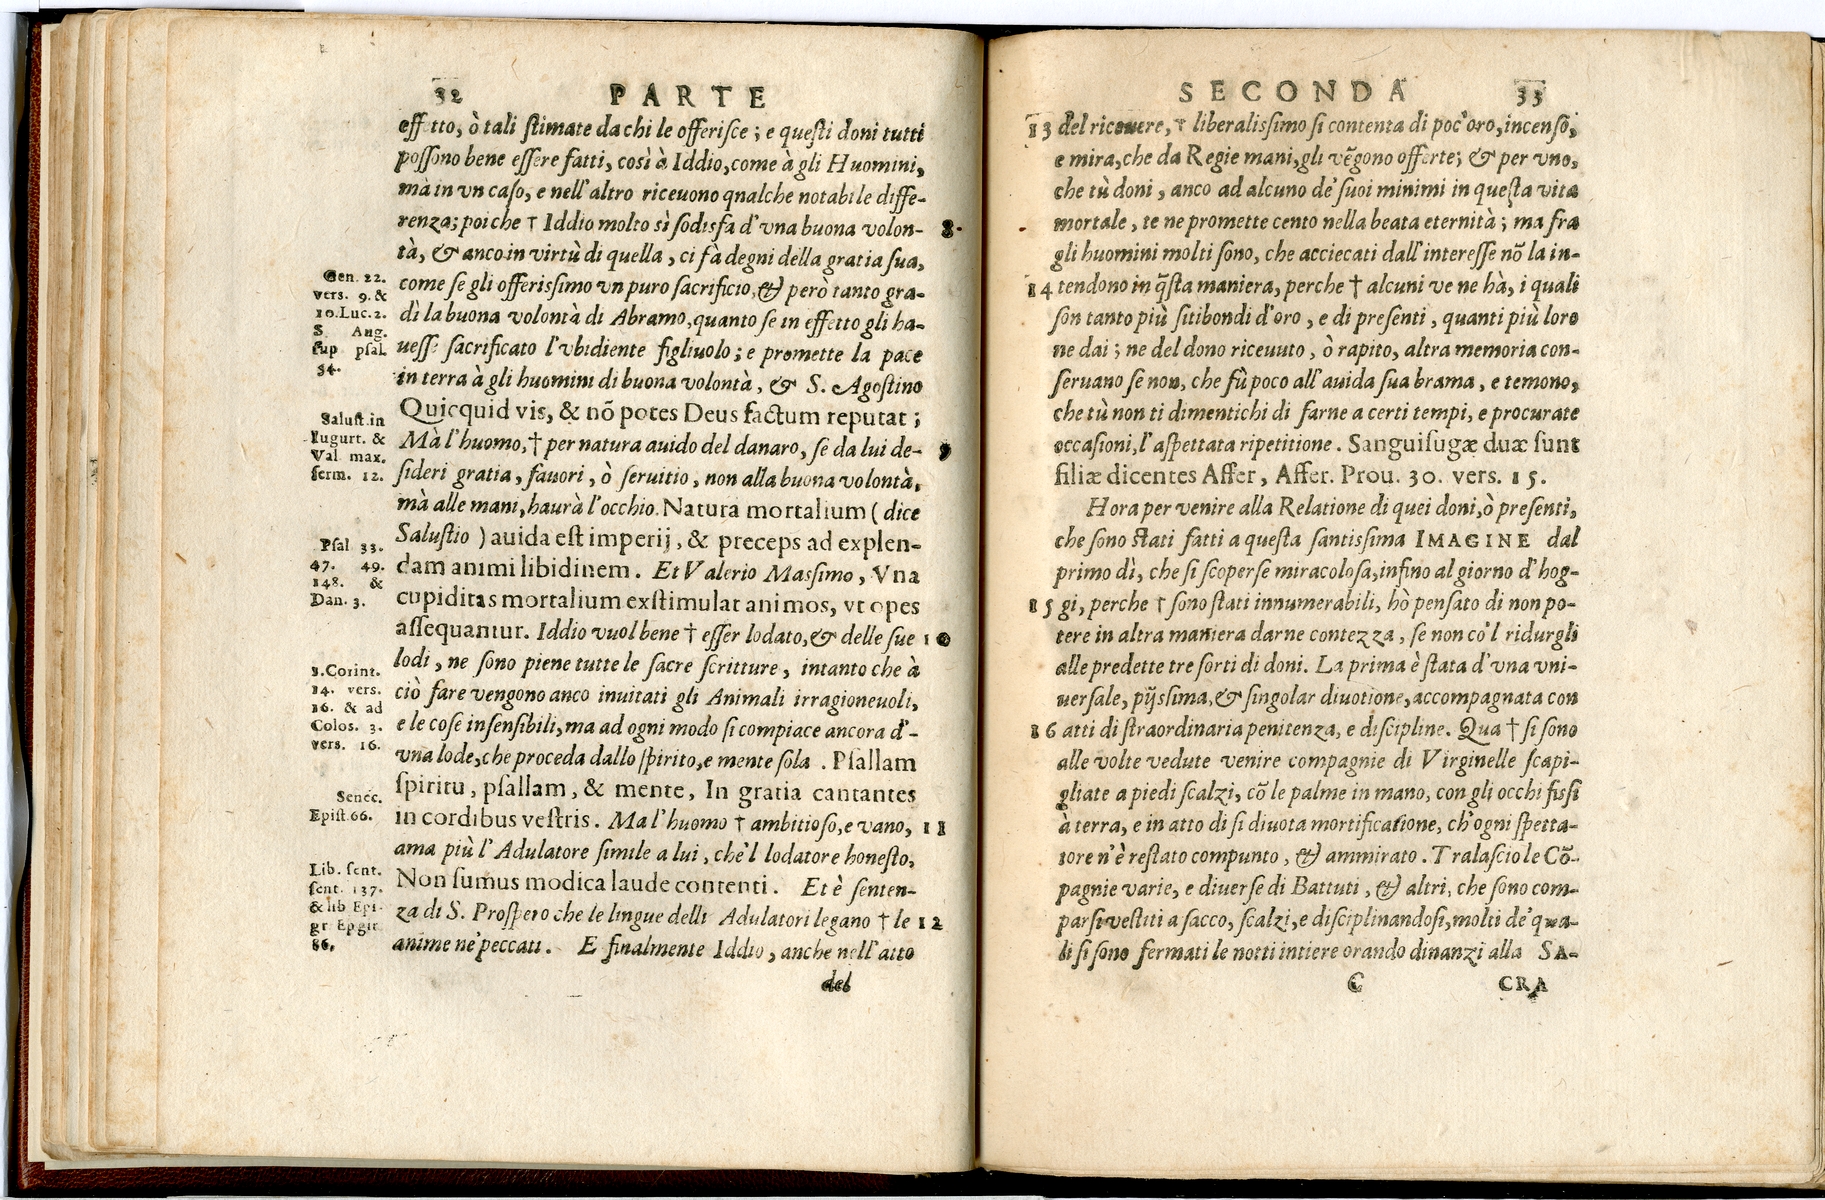 32 PARTE
effetto, ò tali ſtimate da chi le offeriſce; e queſti doni tutti
poſſono bene eſſere fatti, così à Iddio, come à gli Huomini,
mà in vn caſo, e nell'altro riceuono qnalche notabile diffe-
renza; poiche † Iddio molto sì ſodisfa d'vna buona volon- 8.
tà, & anco in virtù di quella, ci fà degni della gratia ſua,
come ſe gli offeriſſimo vn puro ſacrificio, & però tanto gra-
dì la buona volontà di Abramo, quanto ſe in effetto gli ha-
ueſſe ſacrificato l'vbidiente figliuolo; e promette la pace
in terra à gli huomini di buona volontà, & S. Agoſtino
Quicquid vis, & nõ potes Deus factum reputat;
Mà l'huomo, † per natura auido del danaro, ſe da lui de- 9
ſideri gratia, fauori, ò ſeruitio, non alla buona volontà,
mà alle mani, haurà l'occhio. Natura mortalium ( dice
Saluſtio ) auida eſt imperij, & preceps ad explen-
dam animi libidinem. Et Valerio Maſſimo, Vna
cupiditas mortalium exſtimulat animos, vt opes
aſſequantur. Iddio vuol bene † eſſer lodato, & delle ſue 10
lodi, ne ſono piene tutte le ſacre ſcritture, intanto che à
ciò fare vengono anco inuitati gli Animali irragioneuoli,
e le coſe inſenſibili, ma ad ogni modo ſi compiace ancora d'-
vna lode, che proceda dallo ſpirito, e mente ſola . Pſallam
ſpiritu, pſallam, & mente, In gratia cantantes
in cordibus veſtris. Ma l'huomo † ambitioſo, e vano, 11
ama più l'Adulatore ſimile a lui, che'l lodatore honeſto,
Non ſumus modica laude contenti. Et è ſenten-
za di S. Proſpero che le lingue delli Adulatori legano † le 12
anime ne'peccati. E finalmente Iddio, anche nell'atto
del
Gen. 22.
vers. 9. &
10. Luc. 2.
S. Aug.
ſup pſal.
34.
Saluſt. in
Iugurt. &
Val max.
ſerm. 12.
Pſal 33.
47. 49.
148. &
Dan. 3.
1. Corint.
14. vers.
16. & ad
Colos. 3.
vers. 16.
Senec.
Epiſt. 66.
Lib. ſent.
ſent. 137.
& lib Epi-
gr Epgir
86.
SECONDA 33
13 del riceuere, † liberaliſſimo ſi contenta di poc'oro, incenſo,
e mira, che da Regie mani, gli vẽgono offerte; & per vno,
che tù doni, anco ad alcuno de'ſuoi minimi in queſta vita
mortale, te ne promette cento nella beata eternità; ma fra
gli huomini molti ſono, che acciecati dall'intereſſe nõ la in-
14 tendono in q̃ſta maniera, perche † alcuni ve ne hà, i quali
ſon tanto più ſitibondi d'oro, e di preſenti, quanti più loro
ne dai; ne del dono riceuuto, ò rapito, altra memoria con-
ſeruano ſe non, che fù poco all'auida ſua brama, e temono,
che tù non ti dimentichi di farne a certi tempi, e procurate
occaſioni, l'aſpettata ripetitione. Sanguiſugæ duæ ſunt
filiæ dicentes Affer, Affer. Prou. 30. vers. 15.
Hora per venire alla Relatione di quei doni, ò preſenti,
che ſono ſtati fatti a queſta santiſſima IMAGINE dal
primo dì, che ſi ſcoperſe miracoloſa, infino al giorno d'hog-
15 gi, perche † ſono ſtati innumerabili, hò penſato di non po-
tere in altra maniera darne contezza, ſe non co'l ridurgli
alle predette tre ſorti di doni. La prima è ſtata d'vna vni-
uerſale, pijſſima, & ſingolar diuotione, accompagnata con
16 atti di ſtraordinaria penitenza, e diſcipline. Qua † ſi ſono
alle volte vedute venire compagnie di Virginelle ſcapi-
gliate a piedi ſcalzi, cõ le palme in mano, con gli occhi fiſſi
à terra, e in atto di ſi diuota mortificatione, ch'ogni ſpetta-
tore n'è reſtato compunto, & ammirato. Tralaſcio le Cõ-
pagnie varie, e diuerſe di Battuti, & altri, che ſono com-
parſi veſtiti a ſacco, ſcalzi, e diſciplinandoſi, molti de'qua-
li ſi ſono fermati le notti intiere orando dinanzi alla SA-
C CRA